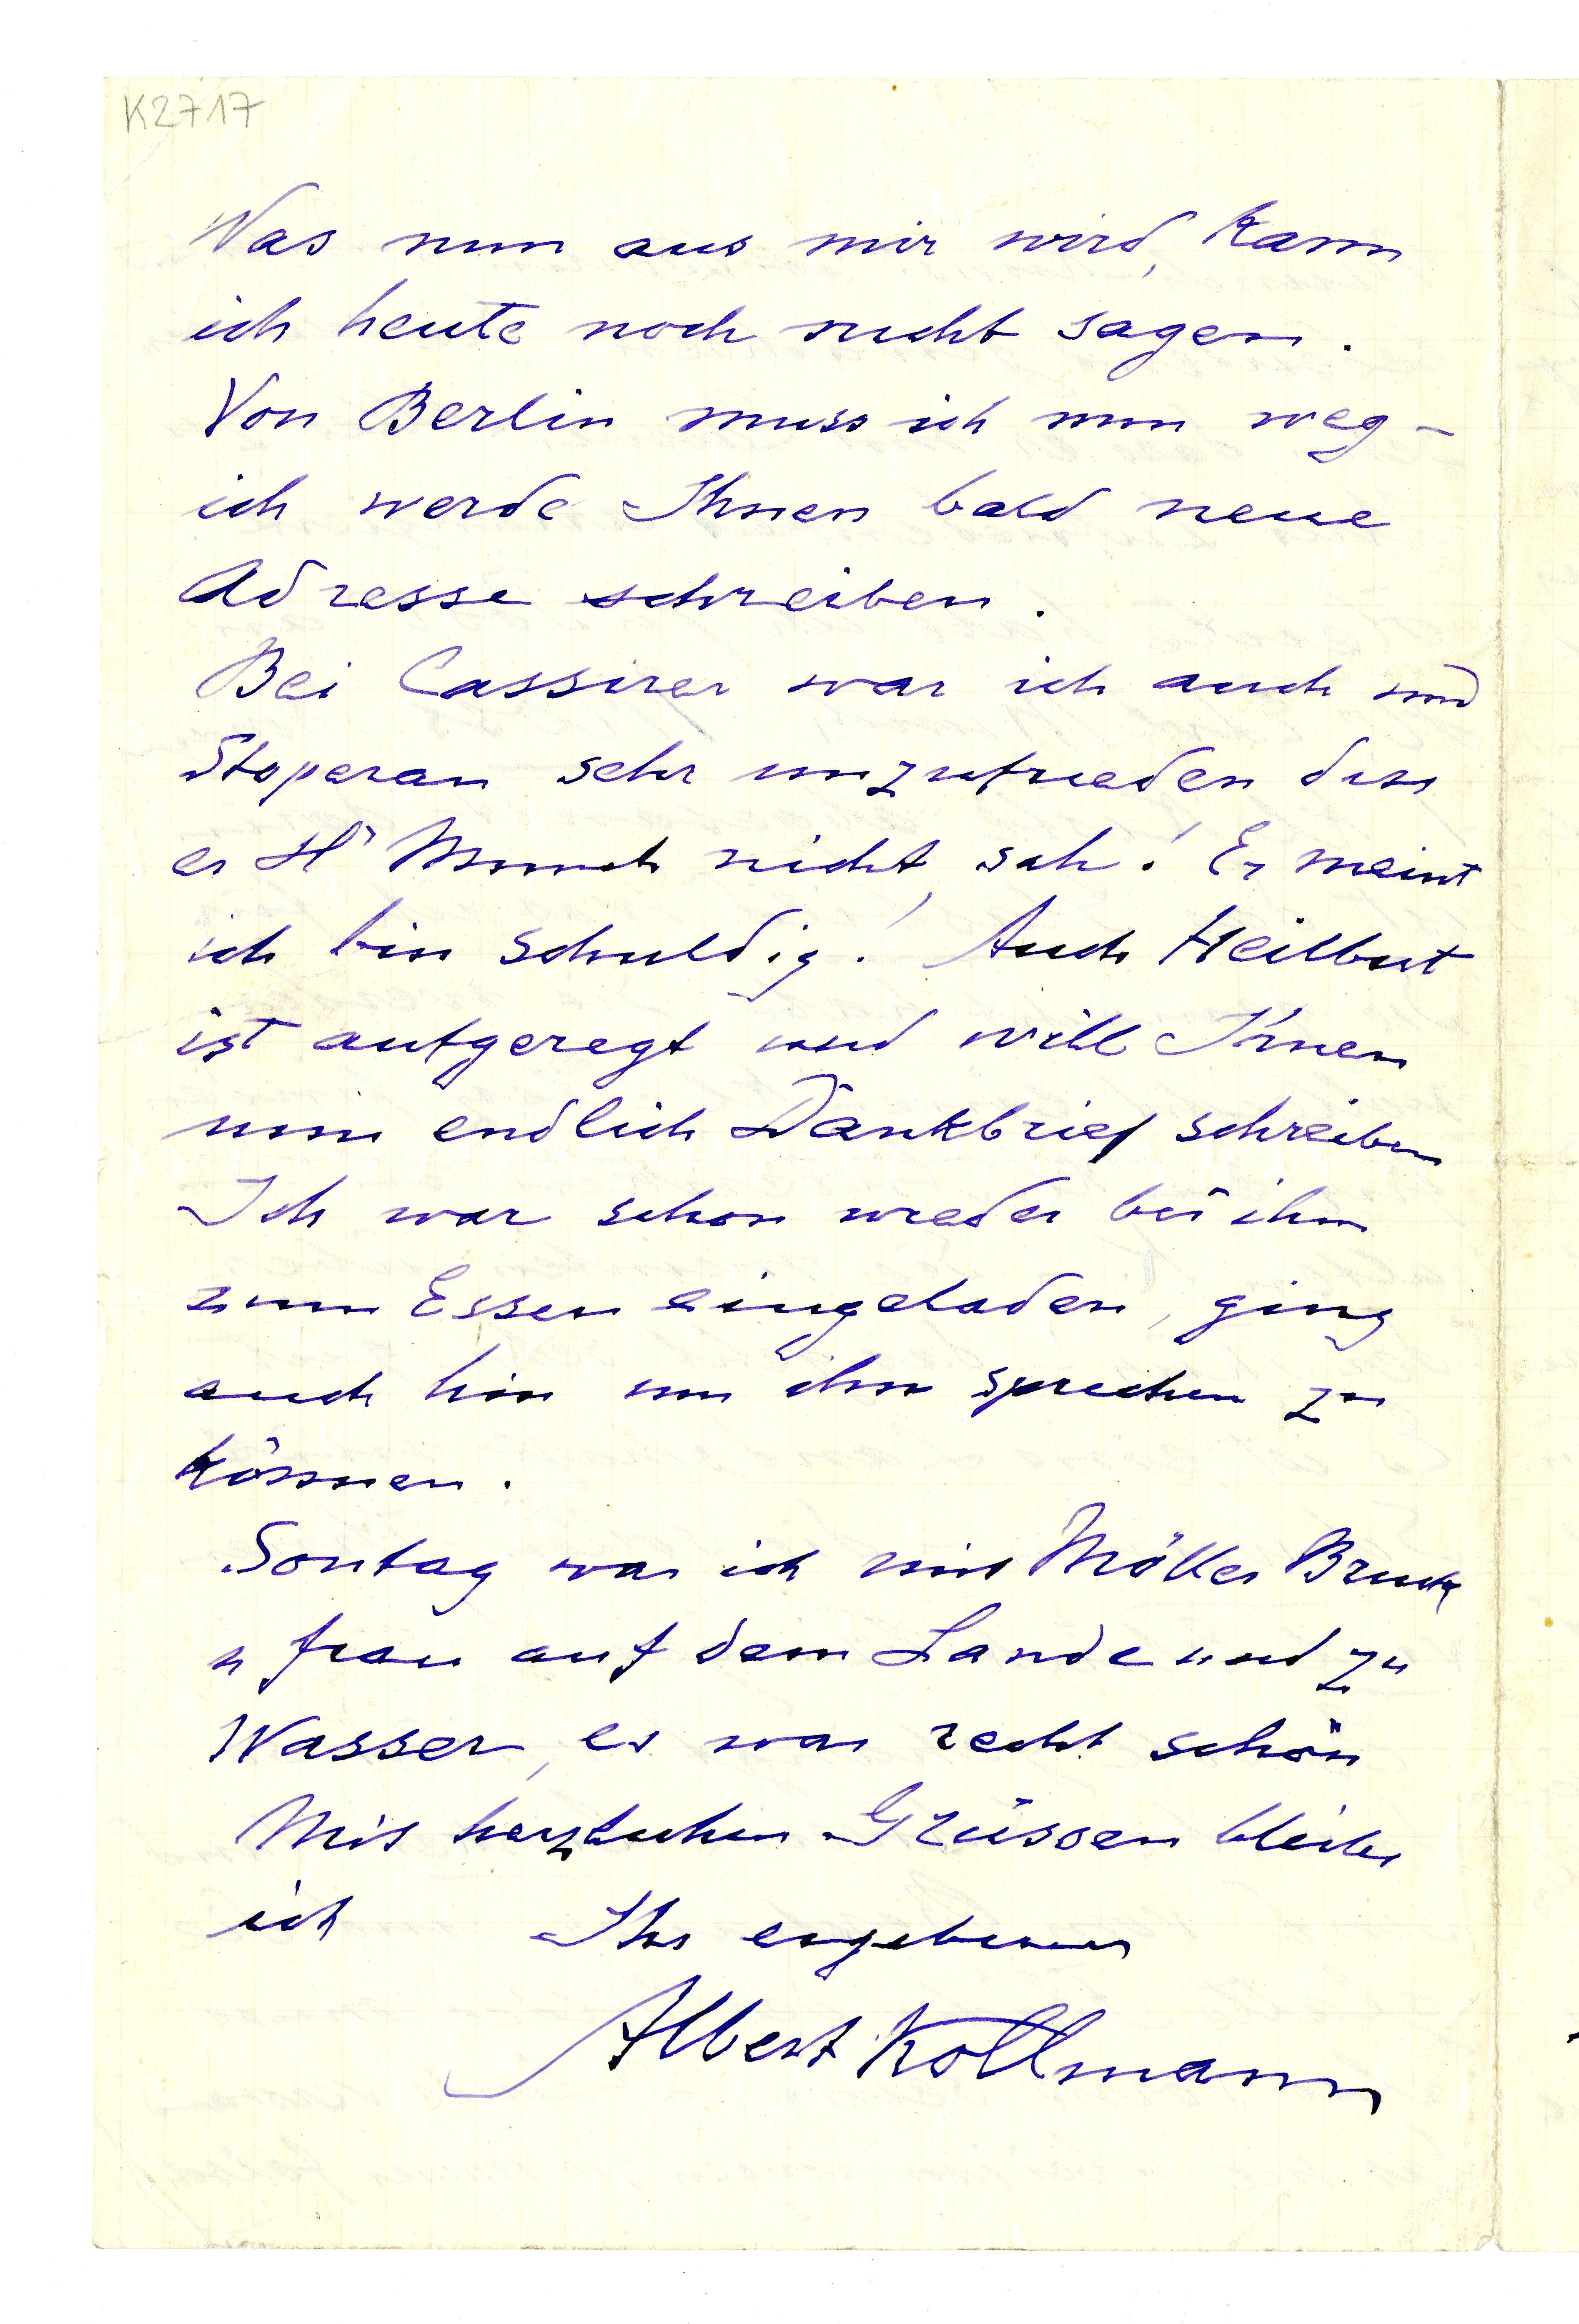 K2717
Was nun aus mir wird, kann
ich heute noch nicht sagen.
Von Berlin muss ich nun weg –
ich werde Ihnen bald neue
Adresse schreiben.
Bei Cassirer war ich auch und
Stoperan sehr unzufrieden dass
er H' Munch nicht sah! Er meint
ich bin schuldig! Auch Heilbut
ist aufgeregt und will Ihnen
nun endlich Dankbrief schreiben
Ich war schon wieder bei ihm
zum Essen eingeladen, ging
auch hin um ihn sprechen zu
können.
Sontag war ich mit Möller Bruck
u frau auf dem Lande und zu
Wasser, es war recht schön
Mit herzlichen Grüssen bleibe
ich Ihr ergebener
Albert Kollmann